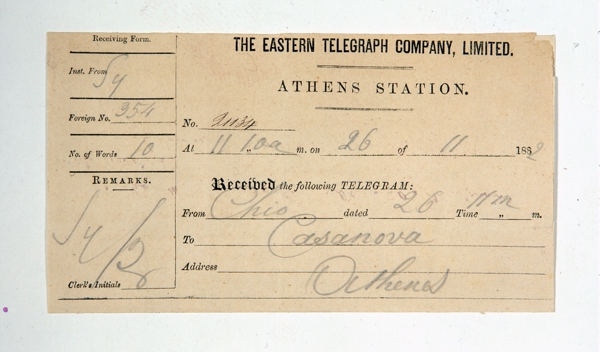 Receiving Form.
Inst. From Sy
Foreign No. 354
No. of Words 10
REMARKS.
Sy/
Clerk's Initials
THE EASTERN TELEGRAPH COMPANY, LIMITED.
ATHENS STATION.
No. 2134
At 11 10 a m. on 26 of 11 188
Received the following TELEGRAM:
From Chio dated 26 Time 11 m „ m.
To Casanova
Address Athenes